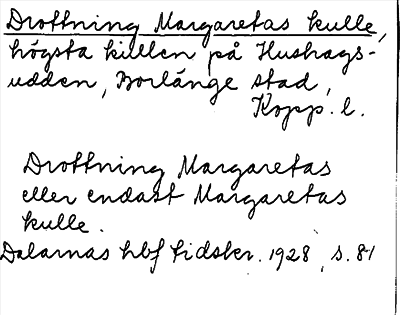 Drottning Margaretas kulle,
högsta kullen på Hushags-
udden, Borlänge stad,
Kopp. l.
Drottning Margaretas
eller endast Margaretas
kulle.
Dalarnas hbf tidskr. 1928, s. 81